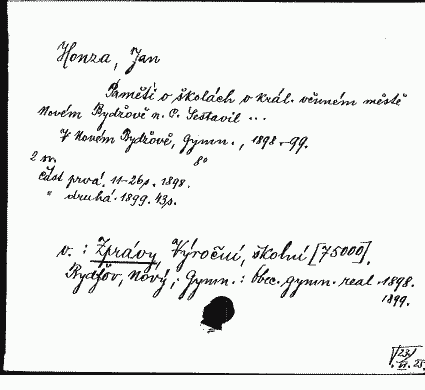 Honza, Jan
Paměti o školách v král. věnném městě
Novém Bydžově n. C. Sestavil ...
V Novém Bydžově, Gymn., 1898-99.
2 sv. 8°
Část prvá. 11-26 s. 1898.
" druhá. 1899. 43 s.
v.: Zprávy, Výroční, školní [75000].
Bydžov, Nový,: Gymn.: Obec. gymn. real. 1898.
1899.